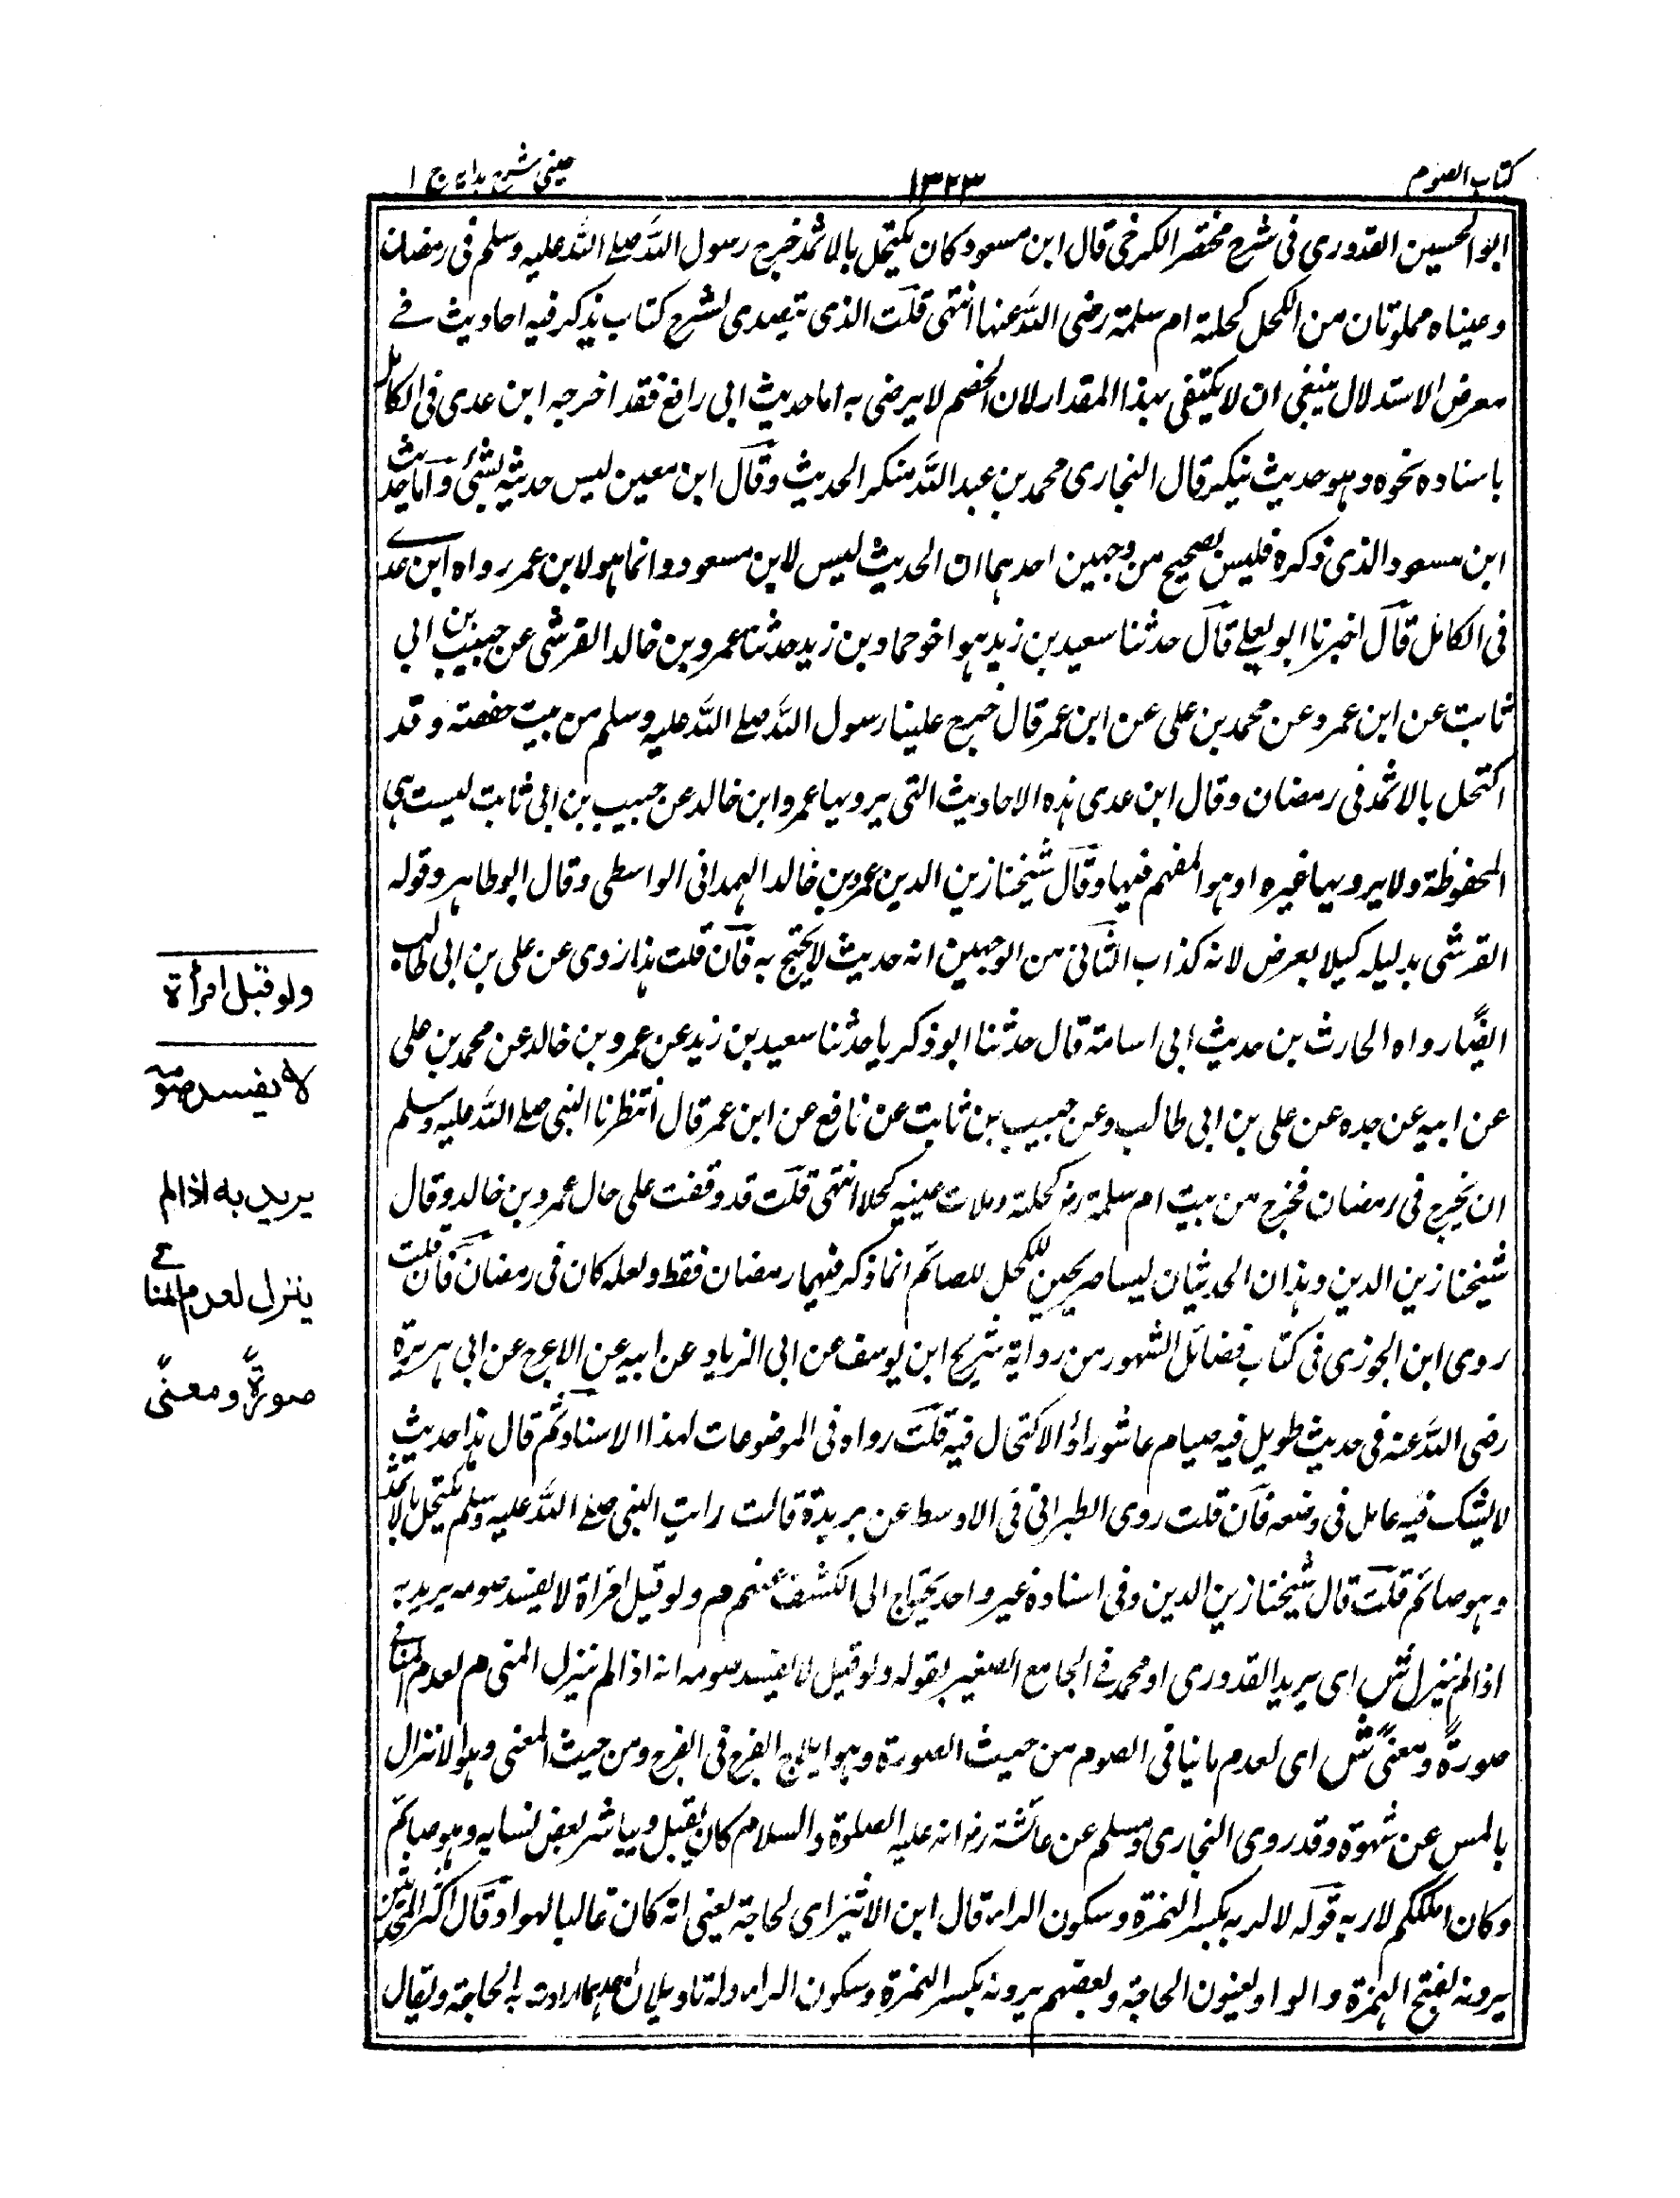 كتاب الصوم
١٣٢٣
عينى شرح هدايه ج ١
ابو الحسين القدورى فى شرح مختصر الكرخى قال ابن مسعود كان يكتحل بالاثمد خرج رسول الله صلے الله عليه وسلم فى رمضان
وعيناه مملوتان من الكحل كحلته ام سلمة رضى الله عنها انتهى قلت الذى يتصدى لشرح كتاب يذكر فيه احاديث فے
معرض الاستدلال ينبغى ان لا يكتفى بهذا المقدار لان الخصم لا يرضى به اما حديث ابى رافع فقد اخرجه ابن عدى فى الكامل
باسناده نحوه وهو حديث ينكر قال البخارى محمد بن عبد الله منكر الحديث وقال ابن معين ليس حديثه بشئ واما حديث
ابن مسعود الذى ذكره فليس بصحيح من وجهين احدهما ان الحديث ليس لابن مسعود وانما هو لابن عمر رواه ابن عدے
فى الكامل قال اخبرنا ابو يعلے قال حدثنا سعيد بن زيد هو اخو حماد بن زيد حدثنا عمرو بن خالد القرشى عن حبيب بن ابى
ثابت عن ابن عمر وعن محمد بن على عن ابن عمر قال خرج علينا رسول الله صلے الله عليه وسلم من بيت حفصة وقد
اكتحل بالاثمد فى رمضان وقال ابن عدى هذه الاحاديث التى يرويها عمرو ابن خالد عن حبيب بن ابى ثابت ليست هى
المحفوظة ولا يرويها غيره او هو المفهم فيها وقال شيخنا زين الدين عمرو بن خالد الهمدانى الواسطى وقال ابو طاهر وقوله
القرشى بدليله كيلا يعرض لانه كذاب الثانى من الوجهين انه حديث لا يحتج به فان قلت هذا روى عن على بن ابى طالب
ايضًا رواه الحارث بن حديث ابى اسامة قال حدثنا ابو ذكريا حدثنا سعيد بن زيد عن عمرو بن خالد عن محمد بن على
عن ابيه عن جده عن على بن ابى طالب وعن حبيب بن ثابت عن نافع عن ابن عمر قال انتظرنا النبى صلے الله عليه وسلم
ان يخرج فى رمضان فخرج من بيت ام سلمة رضـ كحلته وملات عينيه كحلا انتهى قلت قد وقفت على حال عمرو بن خالد وقال
شيخنا زين الدين وهذان الحديثان ليسا صريحين للكحل للصائم انما ذكر فيهما رمضان فقط ولعله كان فى رمضان فان قلت
روى ابن الجوزى فى كتاب فضائل الشهور من رواية شريح ابن يوسف عن ابى الزياد عن ابيه عن الاعرج عن ابى هريرة
رضى الله عنه فى حديث طويل فيه صيام عاشوراؤ الاكتحال فيه قلت رواه فى الموضوعات لهذا الاسناد ثم قال هذا حديث
لا يشك فيه عامل فى وضعه فان قلت روى الطبرانى فى الاوسط عن بريدة قالت رايت النبى صلے الله عليه وسلم يكتحل بالاثمد
وهو صائم قلت قال شيخنا زين الدين وفى اسناده غير واحد يحتاج الى الكشف عنهم م ولو قبل امرأة لا يفسد صومه يريد به
اذا لم ينزل ش اى يريد القدورى او محمد فے الجامع الصغير بقوله ولو قبل لا يفسد صومه انه اذا لم ينزل المنى م لعدم المنافے
صورةً ومعنىً ش اى لعدم ما ينافى الصوم من حيث الصورة وهو ايلاج الفرج فى الفرج ومن حيث المعنى وهو الانزال
بالمس عن شهوة وقد روى البخارى ومسلم عن عائشة رضـ انه عليه الصلوة والسلام كان يقبل ويباشر بعض نسايه وهو صائم
وكان املككم لاربه قوله لاربه بكسر الهمزة وسكون الراء قال ابن الاثير اى لحاجة يعنى انه كان غالبا لهواه وقال اكثر المحدثين
يرونه بفتح الهمزة والواو يعنون الحاجة وبعضهم يرونه بكسر الهمزة وسكون الراء وله تاويلان احدهما ارادت به الحاجة ويقال
ولو قبل امرأة
لا يفسد صومه
يريد به اذا لم
ينزل لعدم المنافے
صورةً ومعنىً